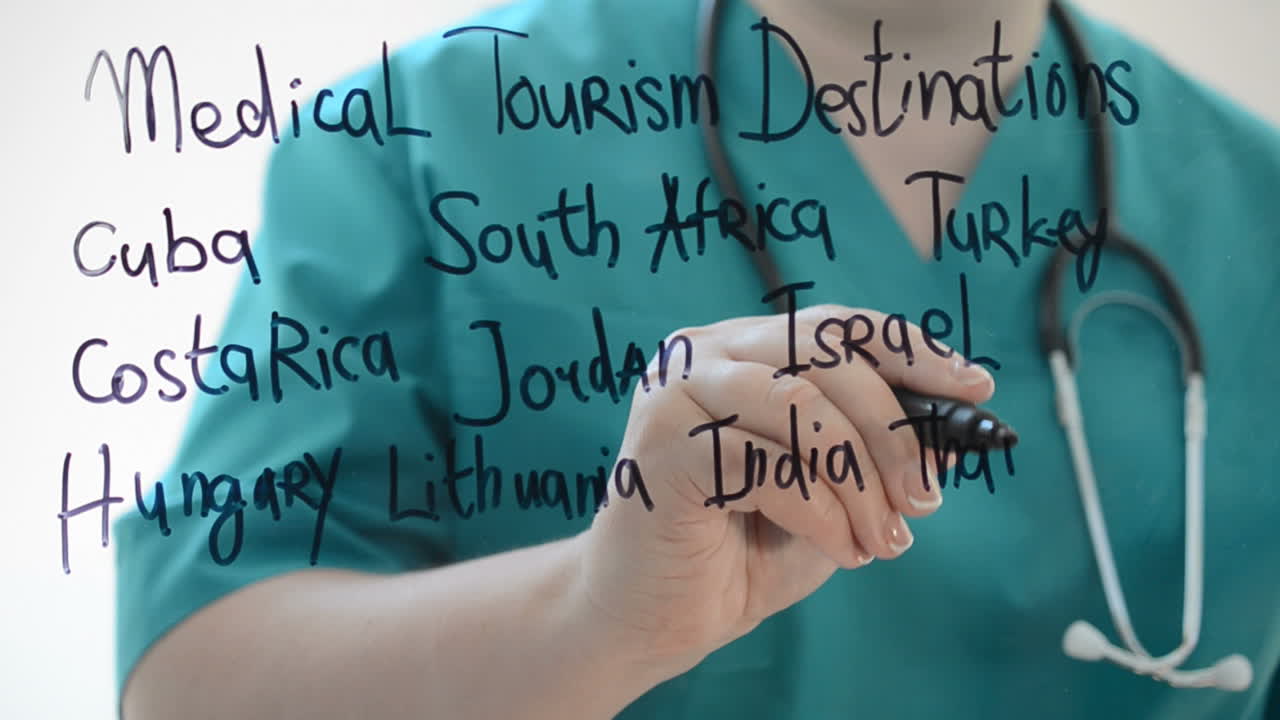 Medical Tourism Destinations
Cuba South Africa Turkey
Costa Rica Jordan Israel
Hungary Lithuania India Thai